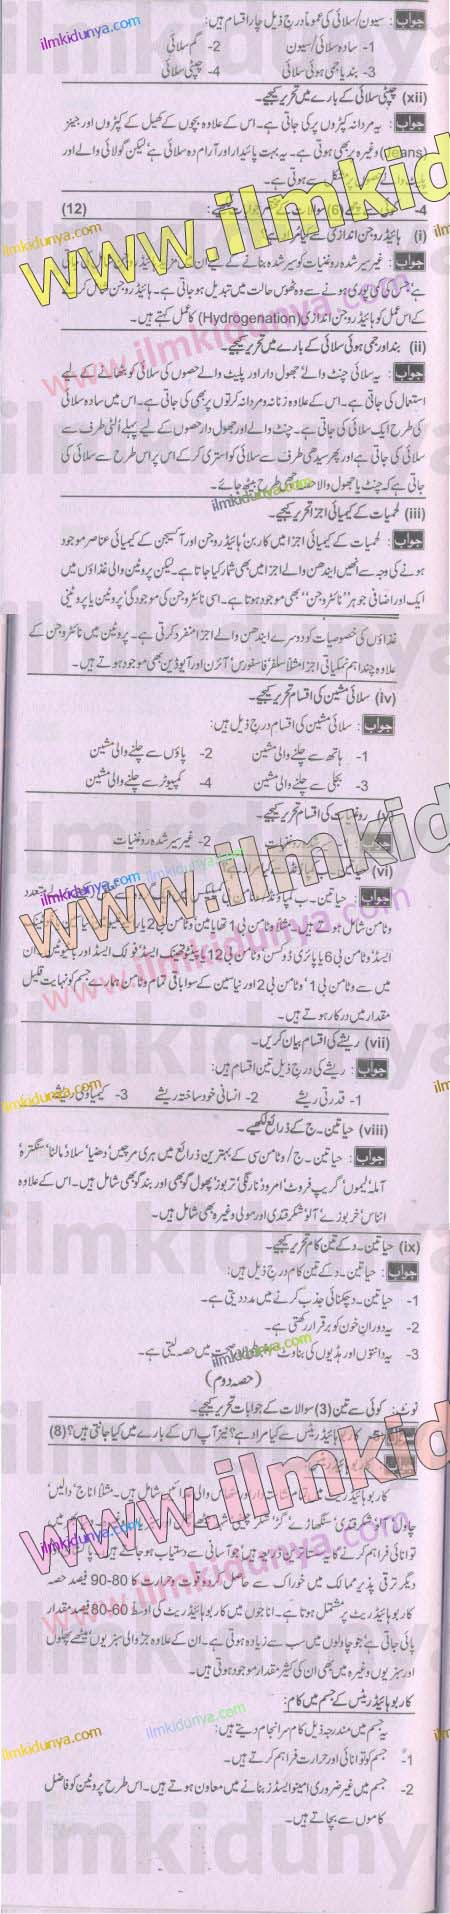 جواب : سیون/سلائی کی عموماً درج ذیل چار اقسام ہیں:
1- سادہ سلائی/سیون 2- گم سلائی
3- بند یا جمی ہوئی سلائی 4- چپٹی سلائی
(xii) چپٹی سلائی کے بارے میں تحریر کیجیے۔
جواب : یہ مردانہ کپڑوں پر کی جاتی ہے۔ اس کے علاوہ بچوں کے کھیل کے کپڑوں اور جینز
(Jeans) وغیرہ پر بھی ہوتی ہے۔ یہ بہت پائیدار اور آرام دہ سلائی ہے لیکن گولائی والے اور
پلیٹ والے حصوں پر مشکل سے ہوتی ہے۔
4- (6) سوالات (12)
(i) ہائیڈروجن اندازی سے کیا مراد ہے؟
جواب : غیر سیر شدہ روغنیات کو سیر شدہ بنانے کے لیے ان میں
ہے جس کی پوری ہونے سے وہ ٹھوس حالت میں تبدیل ہو جاتی ہے۔ ہائیڈروجن شامل کرنے
کے اس عمل کو ہائیڈروجن اندازی (Hydrogenation) کا عمل کہتے ہیں۔
(ii) بند اور جمی ہوئی سلائی کے بارے میں تحریر کیجیے۔
جواب : یہ سلائی چنٹ والے' جھول دار اور پلیٹ والے حصوں کی سلائی کو بٹھانے کے لیے
استعمال کی جاتی ہے۔ اس کے علاوہ زنانہ و مردانہ کرتوں پر بھی کی جاتی ہے۔ اس میں سادہ سلائی
کی طرح ایک سلائی کی جاتی ہے۔ چنٹ والے اور جھول دار حصوں کے لیے پہلے اُلٹی طرف سے
سلائی کی جاتی ہے اور پھر سیدھی طرف سے سلائی کو استری کر کے اس پر اس طرح سے سلائی کی
جاتی ہے کہ چنٹ یا جھول والا حصہ اچھی طرح بیٹھ جائے۔
(iii) لحمیات کے کیمیائی اجزا تحریر کیجیے۔
جواب : لحمیات کے کیمیائی اجزا میں کاربن' ہائیڈروجن اور آکسیجن کے کیمیائی عناصر موجود
ہونے کی وجہ سے انھیں ایندھن والے اجزا میں بھی شمار کیا جاتا ہے۔ لیکن پروٹین والی غذاؤں میں
ایک اور اضافی جوہر ''نائٹروجن'' بھی موجود ہوتا ہے۔ اسی نائٹروجن کی موجودگی' پروٹین یا پروٹینی
غذاؤں کی خصوصیات کو دوسرے ایندھن والے اجزا سے منفرد کرتی ہے۔ پروٹین میں نائٹروجن کے
علاوہ چند اہم نمکیاتی اجزا مثلاً سلفر' فاسفورس' آئرن اور آیوڈین بھی موجود ہوتے ہیں۔
(iv) سلائی مشین کی اقسام تحریر کیجیے۔
جواب : سلائی مشین کی اقسام درج ذیل ہیں:
1- ہاتھ سے چلنے والی مشین 2- پاؤں سے چلنے والی مشین
3- بجلی سے چلنے والی مشین 4- کمپیوٹر سے چلنے والی مشین
(v) روغنیات کی اقسام تحریر کیجیے۔
جواب 2- غیر سیر شدہ روغنیات
(vi)
جواب : حیاتین۔ ب کمپاؤنڈ
وٹامن شامل ہوتے ہیں۔ مثلاً وٹامن بی 1 تھایامین' وٹامن بی 2
ایسڈ' وٹامن بی 6 یا پائری ڈوکسن' وٹامن بی 12' پینٹوتھینک ایسڈ' فولک ایسڈ اور بائیوٹین۔ ان
میں سے وٹامن بی 1' وٹامن بی 2 اور نیاسین کے سوا باقی تمام وٹامن ہمارے جسم کو نہایت قلیل
مقدار میں درکار ہوتے ہیں۔
(vii) ریشے کی اقسام بیان کریں۔
جواب : ریشے کی درج ذیل تین اقسام ہیں:
1- قدرتی ریشے 2- انسانی خود ساختہ ریشے 3- کیمیاوی ریشے
(viii) حیاتین۔ ج کے ذرائع لکھیے۔
جواب : حیاتین۔ ج/ وٹامن سی کے بہترین ذرائع میں ہری مرچیں' دھنیا' سلاد' مالٹا' سنگترہ'
آملہ' لیموں' گریپ فروٹ' امرود' نارنگی' تربوز' پھول گوبھی اور بند گوبھی شامل ہیں۔ اس کے علاوہ
انناس' خربوزے' آلو' شکرقندی اور مولی وغیرہ بھی شامل ہیں۔
(ix) حیاتین۔ د کے تین کام تحریر کیجیے۔
جواب : حیاتین۔ د کے تین کام درج ذیل ہیں:
1- حیاتین۔ د چکنائی جذب کرنے میں مدد دیتی ہے۔
2- یہ دوران خون کو برقرار رکھتی ہے۔
3- یہ دانتوں اور ہڈیوں کی بناوٹ میں حصہ لیتی ہے۔
(حصہ دوم)
نوٹ: کوئی سے تین (3) سوالات کے جوابات تحریر کیجیے۔
کاربوہائیڈریٹس سے کیا مراد ہے؟ نیز آپ اس کے بارے میں کیا جانتی ہیں؟ (8)
کاربوہائیڈریٹس
کاربوہائیڈریٹ میں تمام نشاستہ دار اور مٹھاس والی غذائیں شامل ہیں۔ مثلاً اناج' دالیں'
چاول' آلو' شکرقندی' سنگھاڑے' گڑ' شکر' چینی
توانائی فراہم کرنے کا
دیگر ترقی پذیر ممالک میں خوراک سے حاصل کردہ قوت و حرارت کا 80-90 فیصد حصہ
کاربوہائیڈریٹ پر مشتمل ہوتا ہے۔ اناجوں میں کاربوہائیڈریٹ کی اوسط 60-80 فیصد مقدار
پائی جاتی ہے جو چاولوں میں سب سے زیادہ ہوتی ہے۔ ان کے علاوہ جڑ والی سبزیوں' میٹھے پھلوں
اور سبزیوں وغیرہ میں بھی ان کی کثیر مقدار موجود ہوتی ہیں۔
کاربوہائیڈریٹس کے جسم میں کام:
یہ جسم میں مندرجہ ذیل کام سرانجام دیتے ہیں:
1- جسم کو توانائی اور حرارت فراہم کرتے ہیں۔
2- جسم میں غیر ضروری امینو ایسڈز بنانے میں معاون ہوتے ہیں۔ اس طرح پروٹین کو فاضل
کاموں سے بچاتے ہیں۔